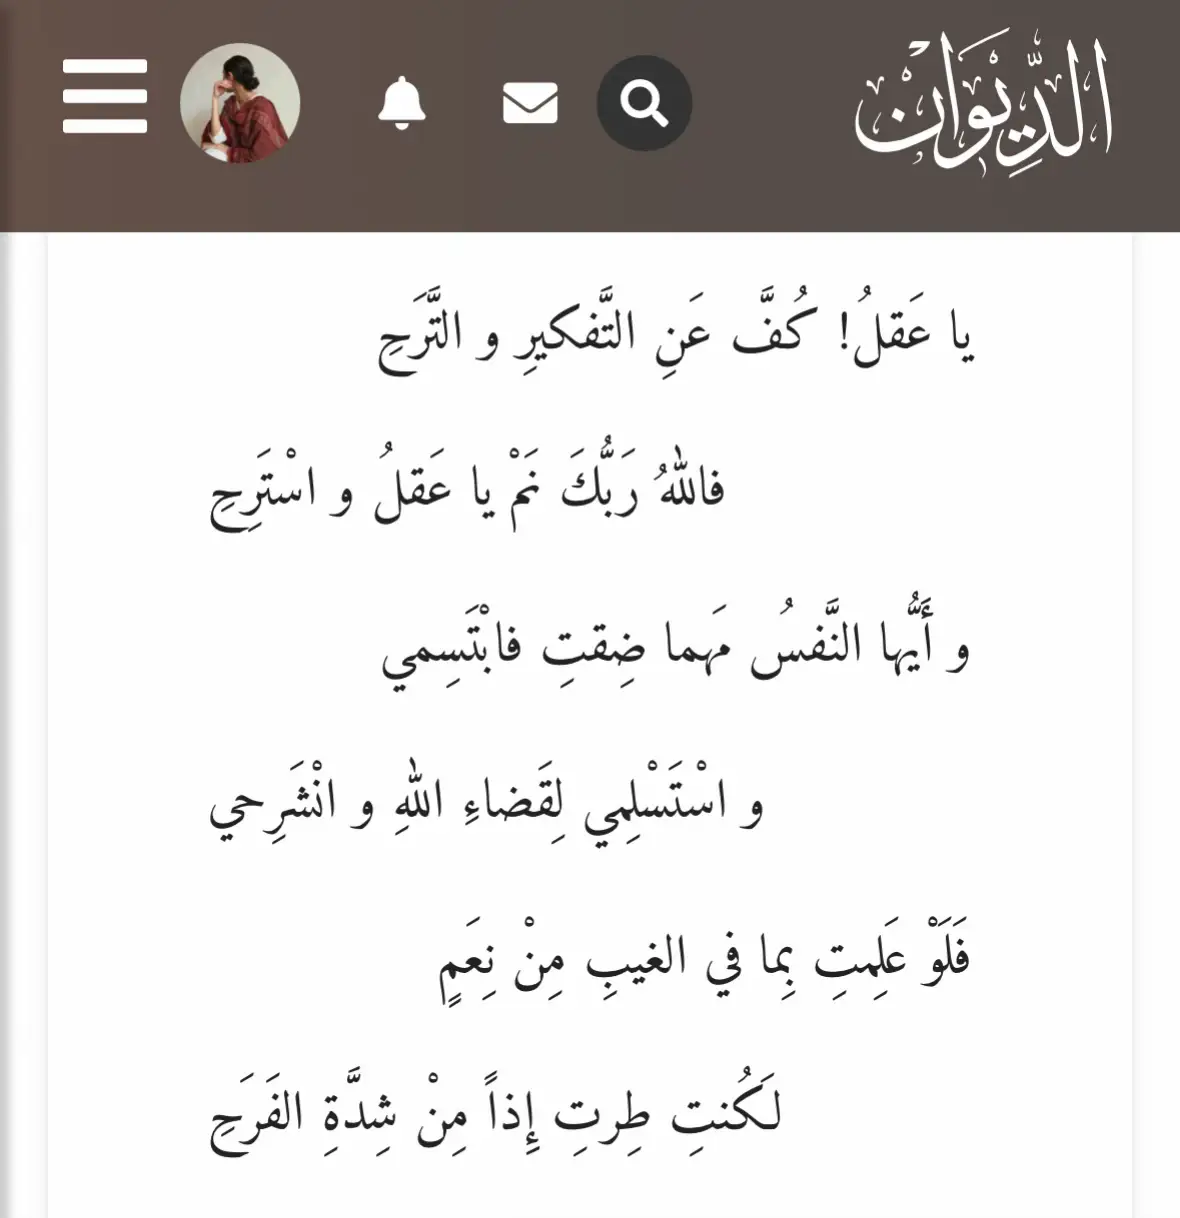 الدِّيْوَانْ
يا عَقلُ! كُفَّ عَنِ التَّفكيرِ و التَّرَحِ
فاللهُ رَبُّكَ نَمْ يا عَقلُ و اسْتَرِحِ
و أَيُّها النَّفسُ مَهما ضِقتِ فابْتَسِمي
و اسْتَسْلِمِي لِقَضاءِ اللهِ و انْشَرِحي
فَلَوْ عَلِمتِ بِما في الغيبِ مِنْ نِعَمٍ
لَكُنتِ طِرتِ إِذاً مِنْ شِدَّةِ الفَرَحِ